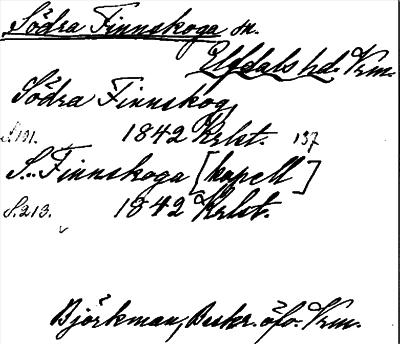 Södra Finnskoga sn.
Älvdals hd. Vrm.
Södra Finnskog
S.191. 1842 Krlst. 137
S. Finnskoga [kapell]
S.213. 1842 Krlst.
Björkman, Beskr. öfv. Vrm.